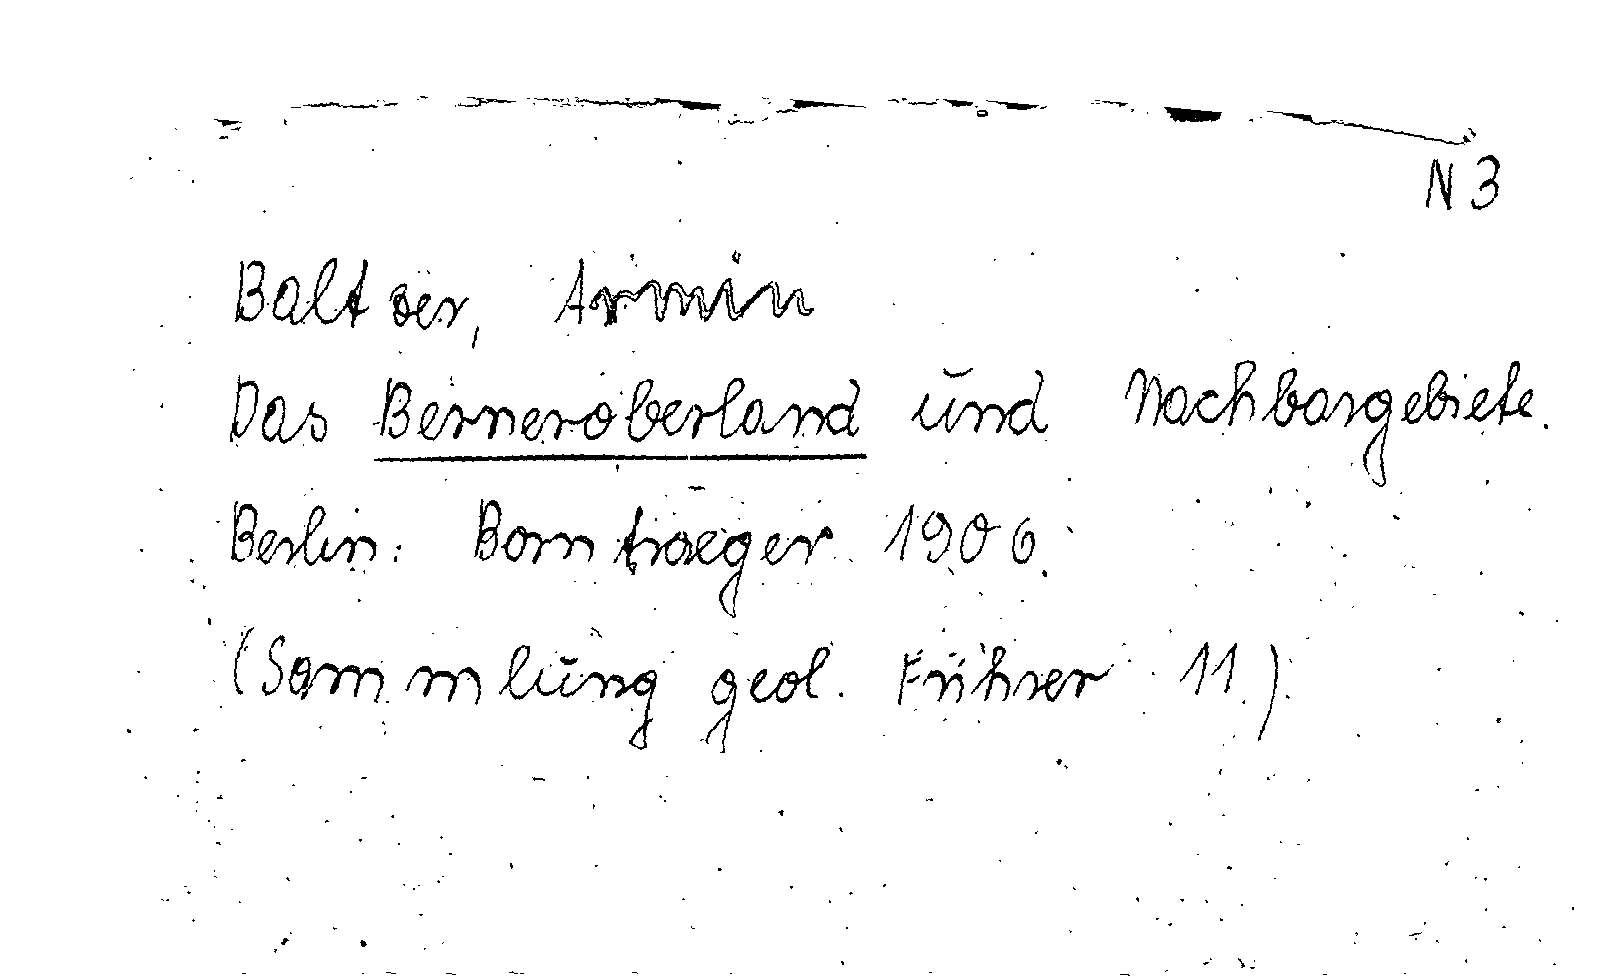 N 3
Baltzer, Armin
Das Berneroberland und Nachbargebiete.
Berlin: Borntraeger 1906.
(Sammlung geol. Führer 11)